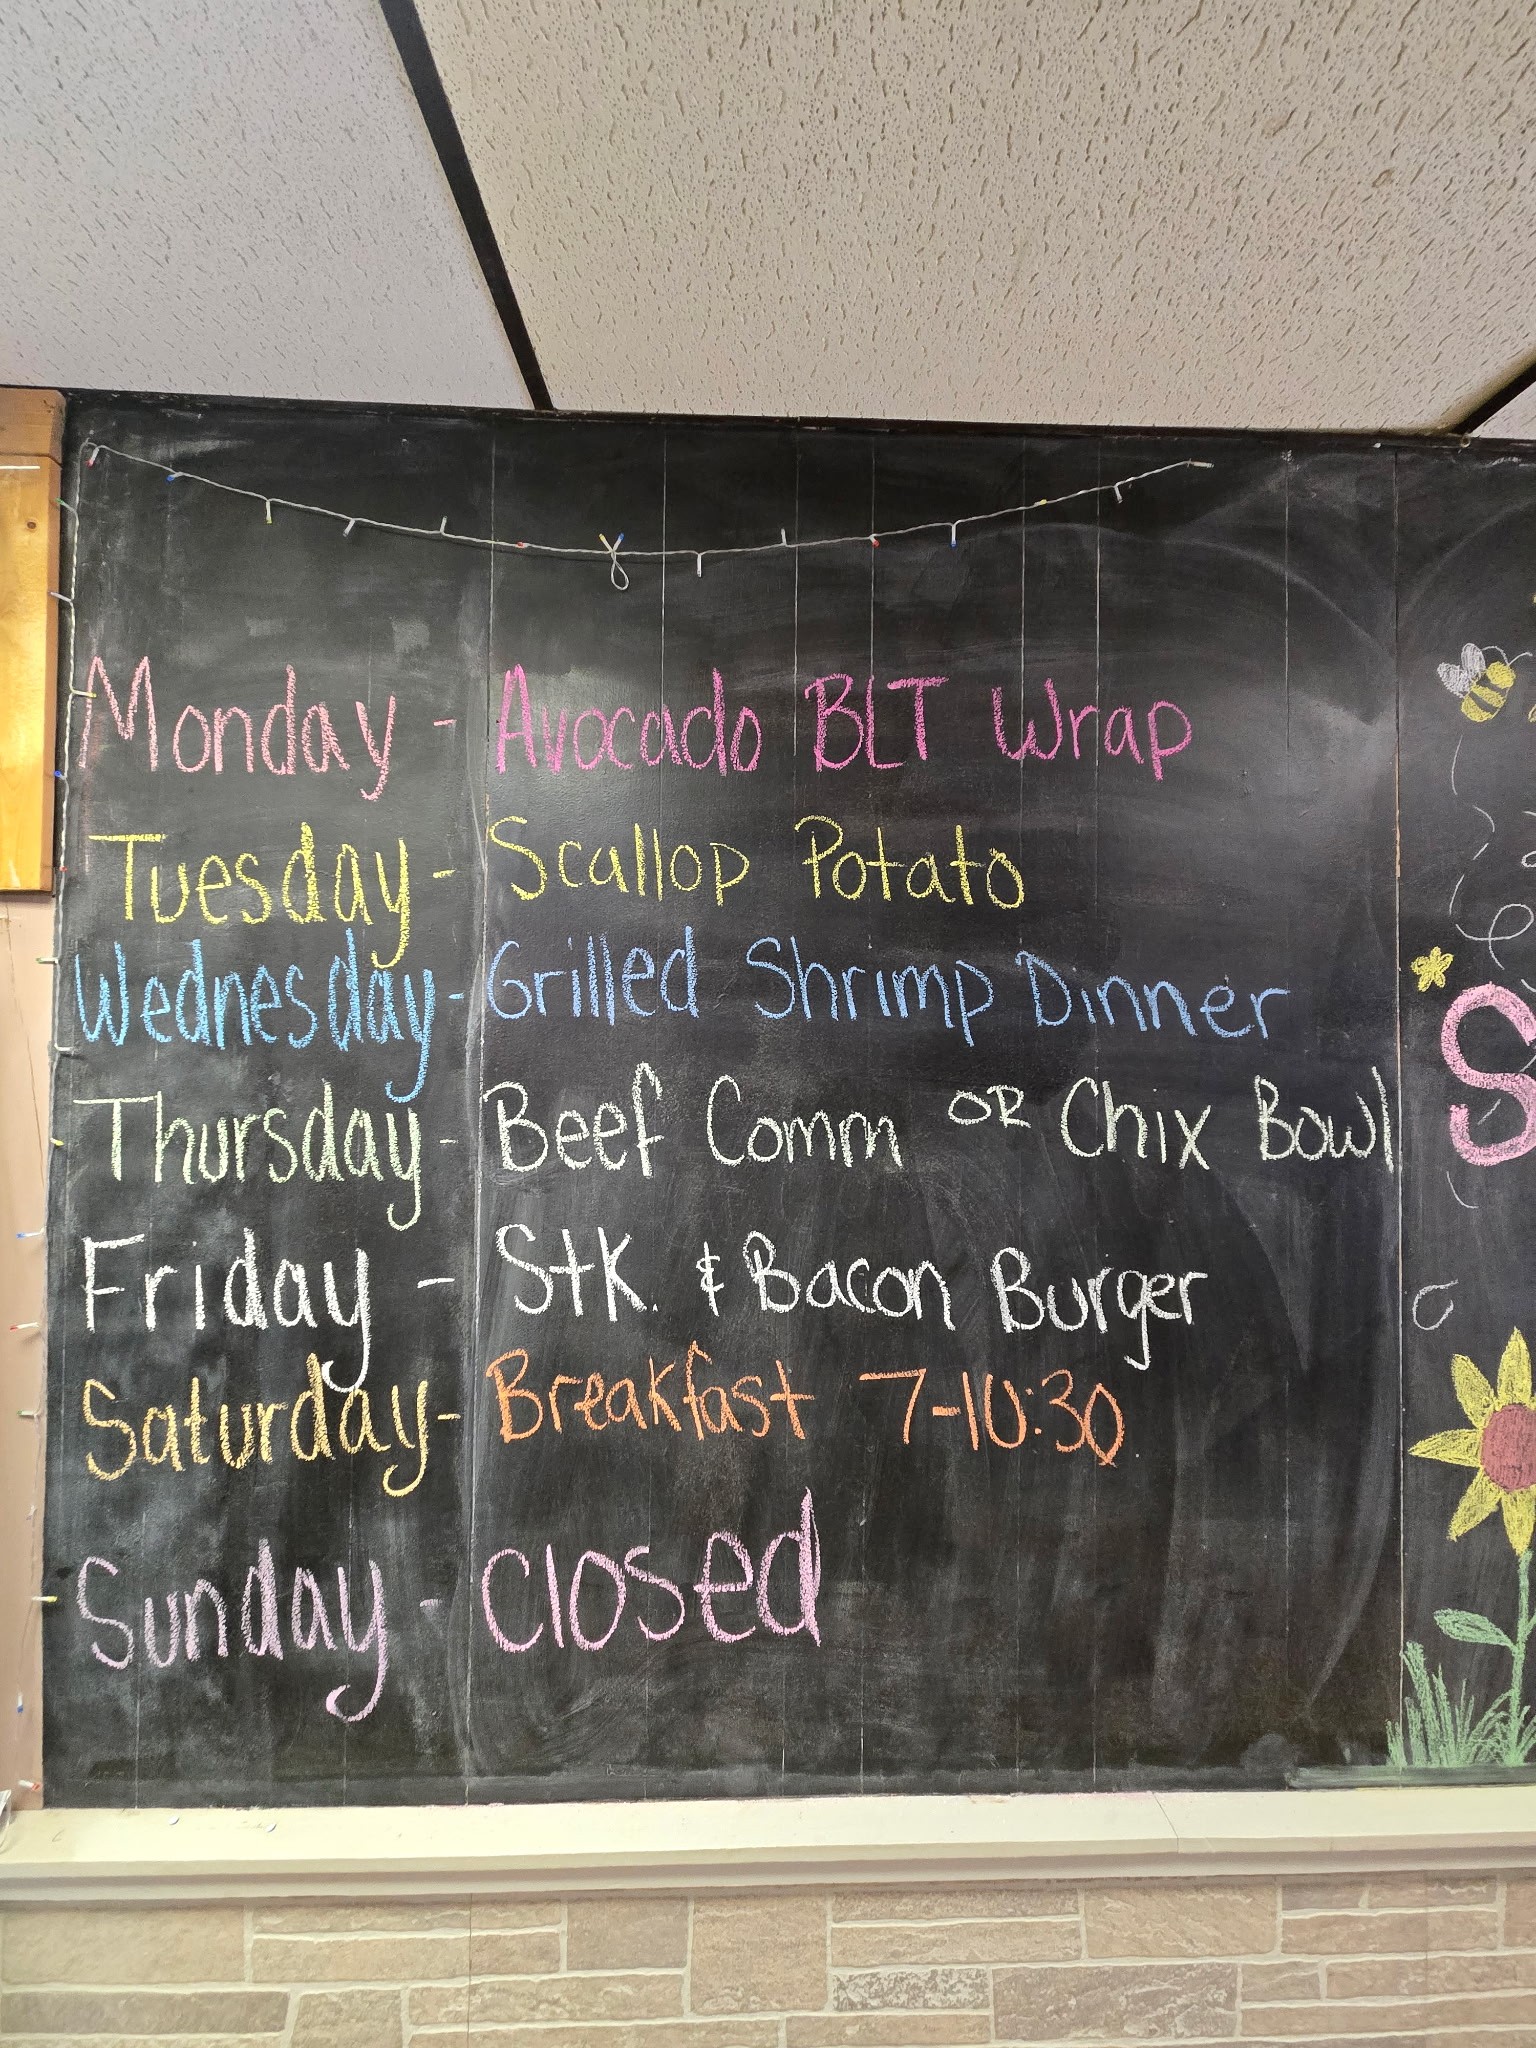 Monday - Avocado BLT Wrap
Tuesday - Scallop Potato
Wednesday - Grilled Shrimp Dinner
Thursday - Beef Comm OR Chix Bowl
Friday - Stk. & Bacon Burger
Saturday - Breakfast 7-10:30
Sunday - Closed
S